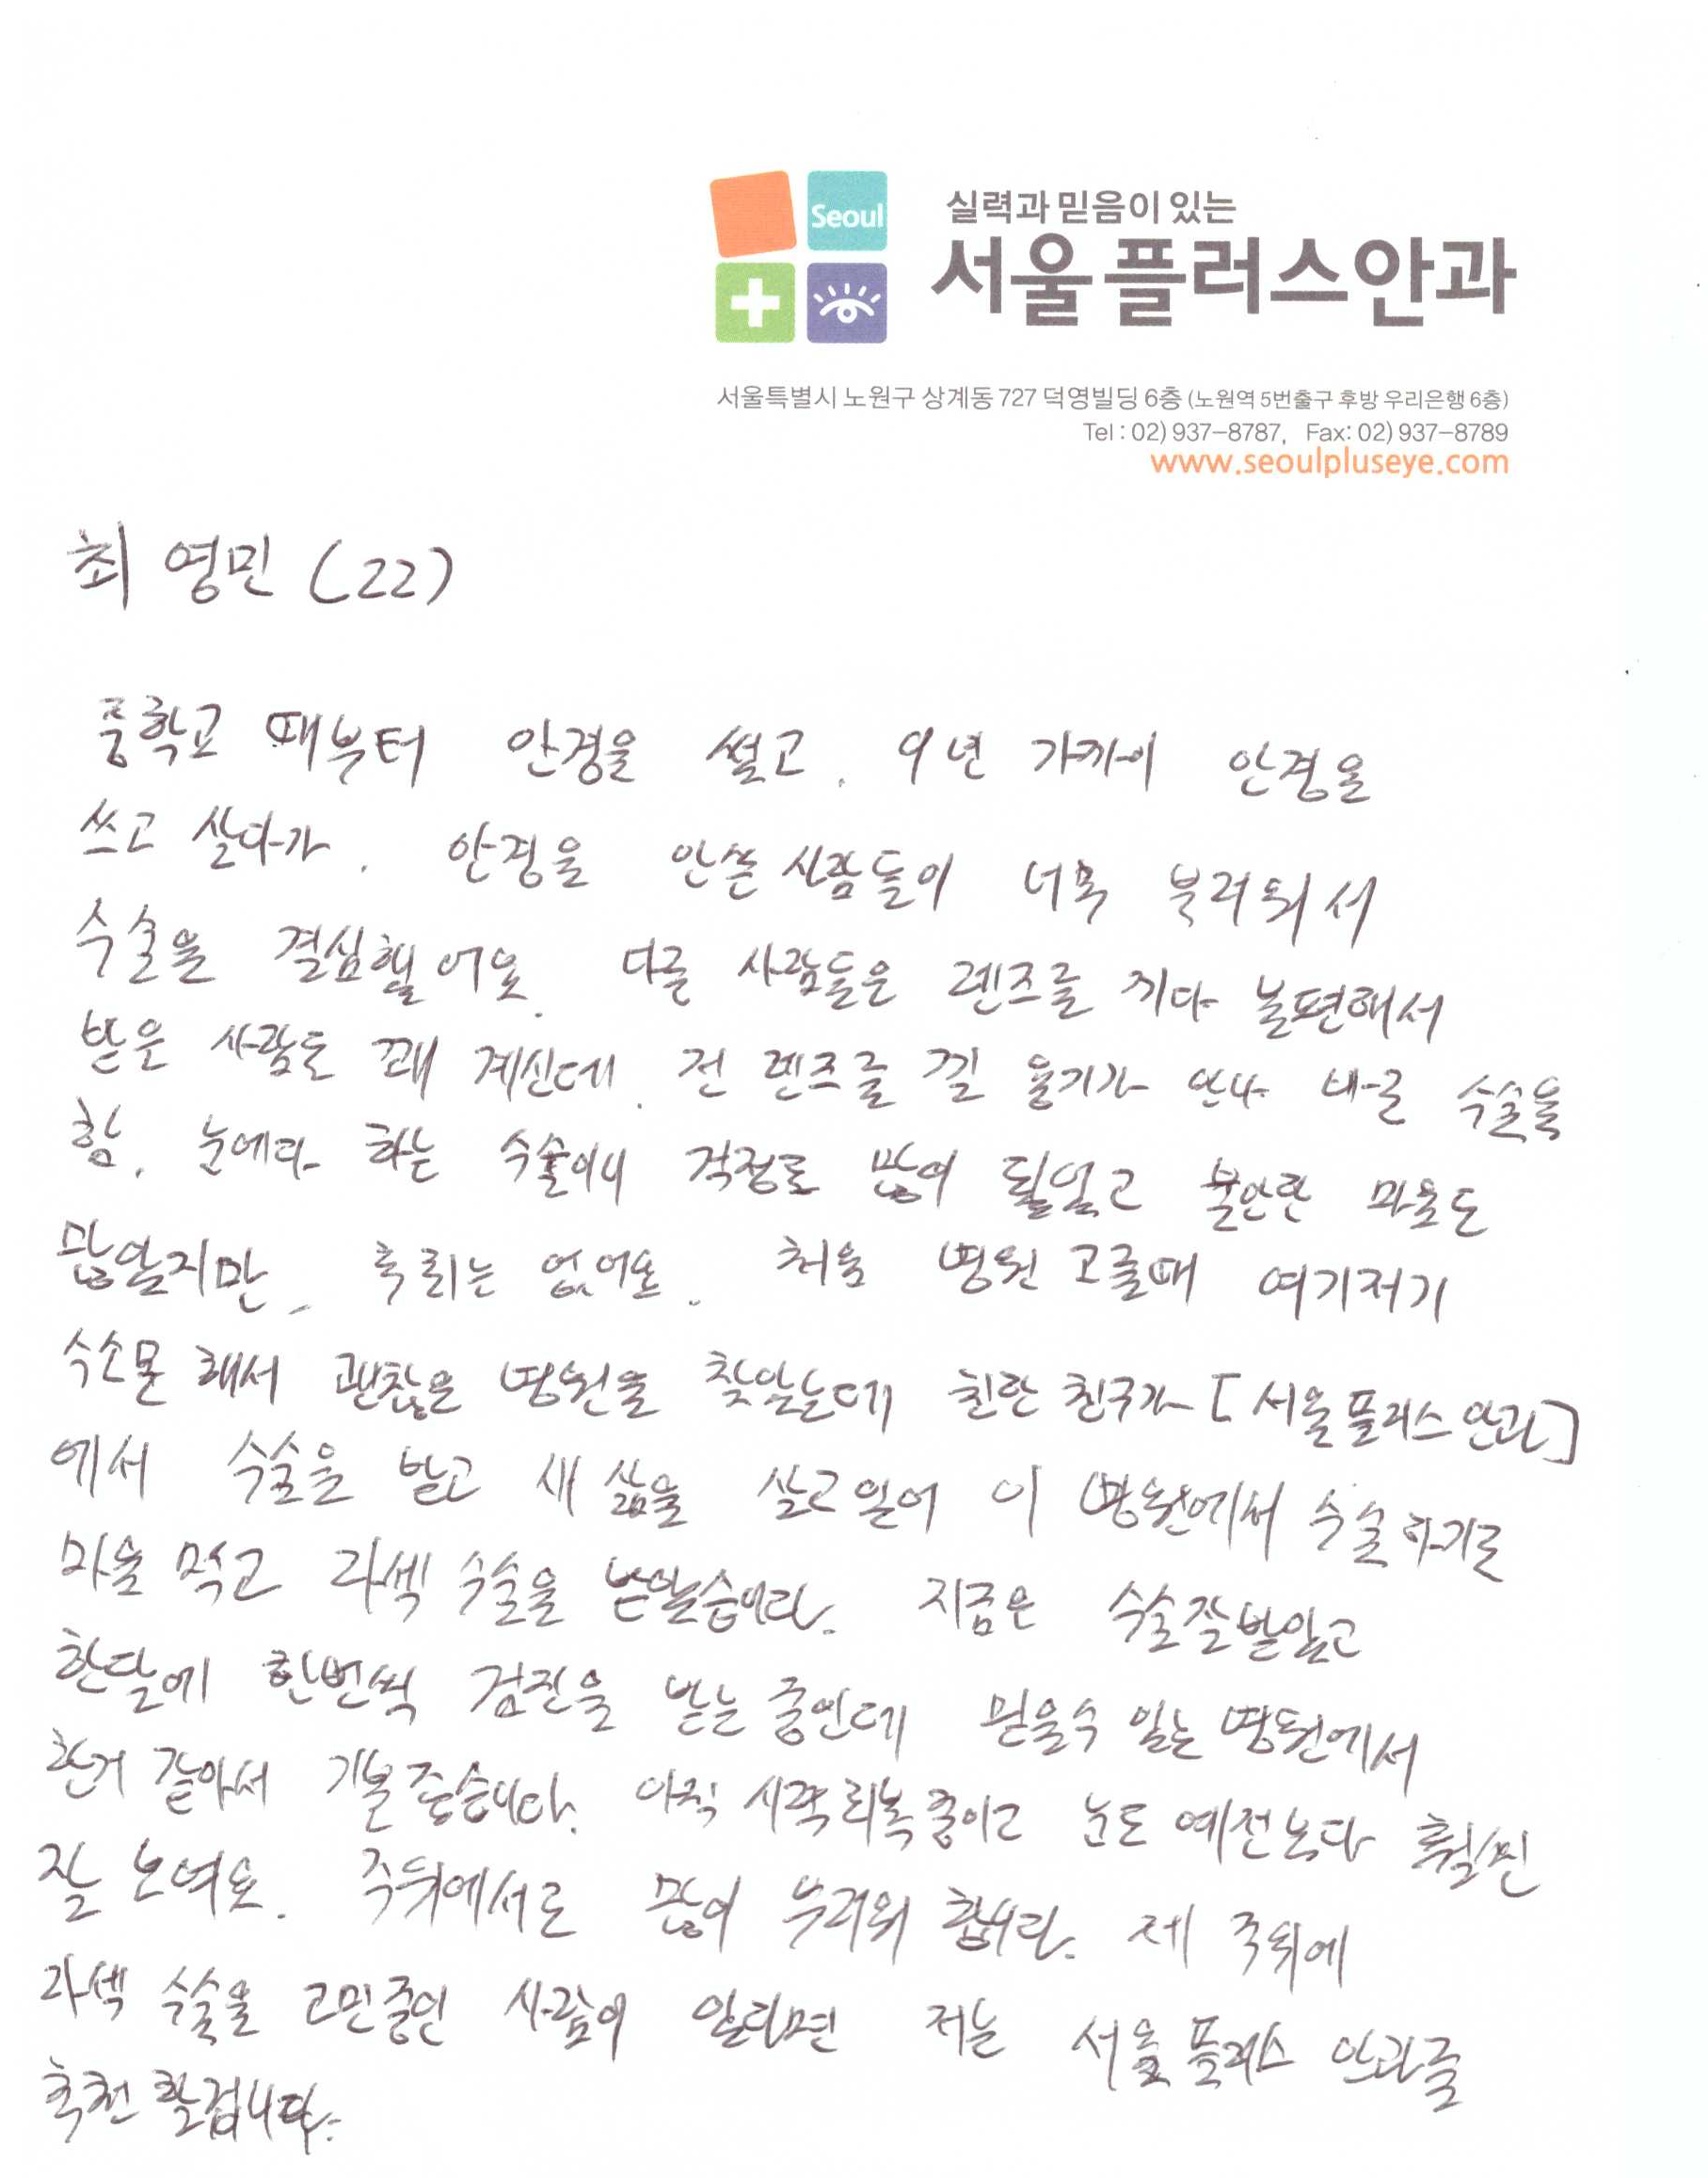 Seoul
실력과 믿음이 있는
서울플러스안과
서울특별시 노원구 상계동 727 덕영빌딩 6층 (노원역 5번출구 후방 우리은행 6층)
Tel : 02) 937-8787, Fax: 02) 937-8789
www.seoulpluseye.com
최 영민 (22)
중학교 때부터 안경을 썼고, 9년 가까이 안경을
쓰고 살다가, 안경을 안쓴 사람들이 너무 부러워서
수술을 결심했어요. 다른 사람들은 렌즈를 끼다 불편해서
받은 사람도 꽤 계신데, 전 렌즈를 낄 용기가 안나 바로 수술을
함. 눈에다 하는 수술이니 걱정도 많이 됬었고 불안한 마음도
많았지만, 후회는 없어요. 처음 병원 고를때 여기저기
수소문 해서 괜찮은 병원을 찾았는데 친한 친구가 [서울플러스안과]
에서 수술을 받고 새 삶을 살고있어 이 병원에서 수술하기로
마음 먹고 라섹 수술을 받았습니다. 지금은 수술잘받았고
한달에 한번씩 검진을 받는 중인데 믿을수 있는 병원에서
한거 같아서 기분좋습니다. 아직 시력회복중이고 눈도 예전보다 훨씬
잘 보여요. 주위에서도 많이 부러워 합니다. 제 주위에
라섹 수술을 고민중인 사람이 있다면 저는 서울플러스 안과를
추천할겁니다.